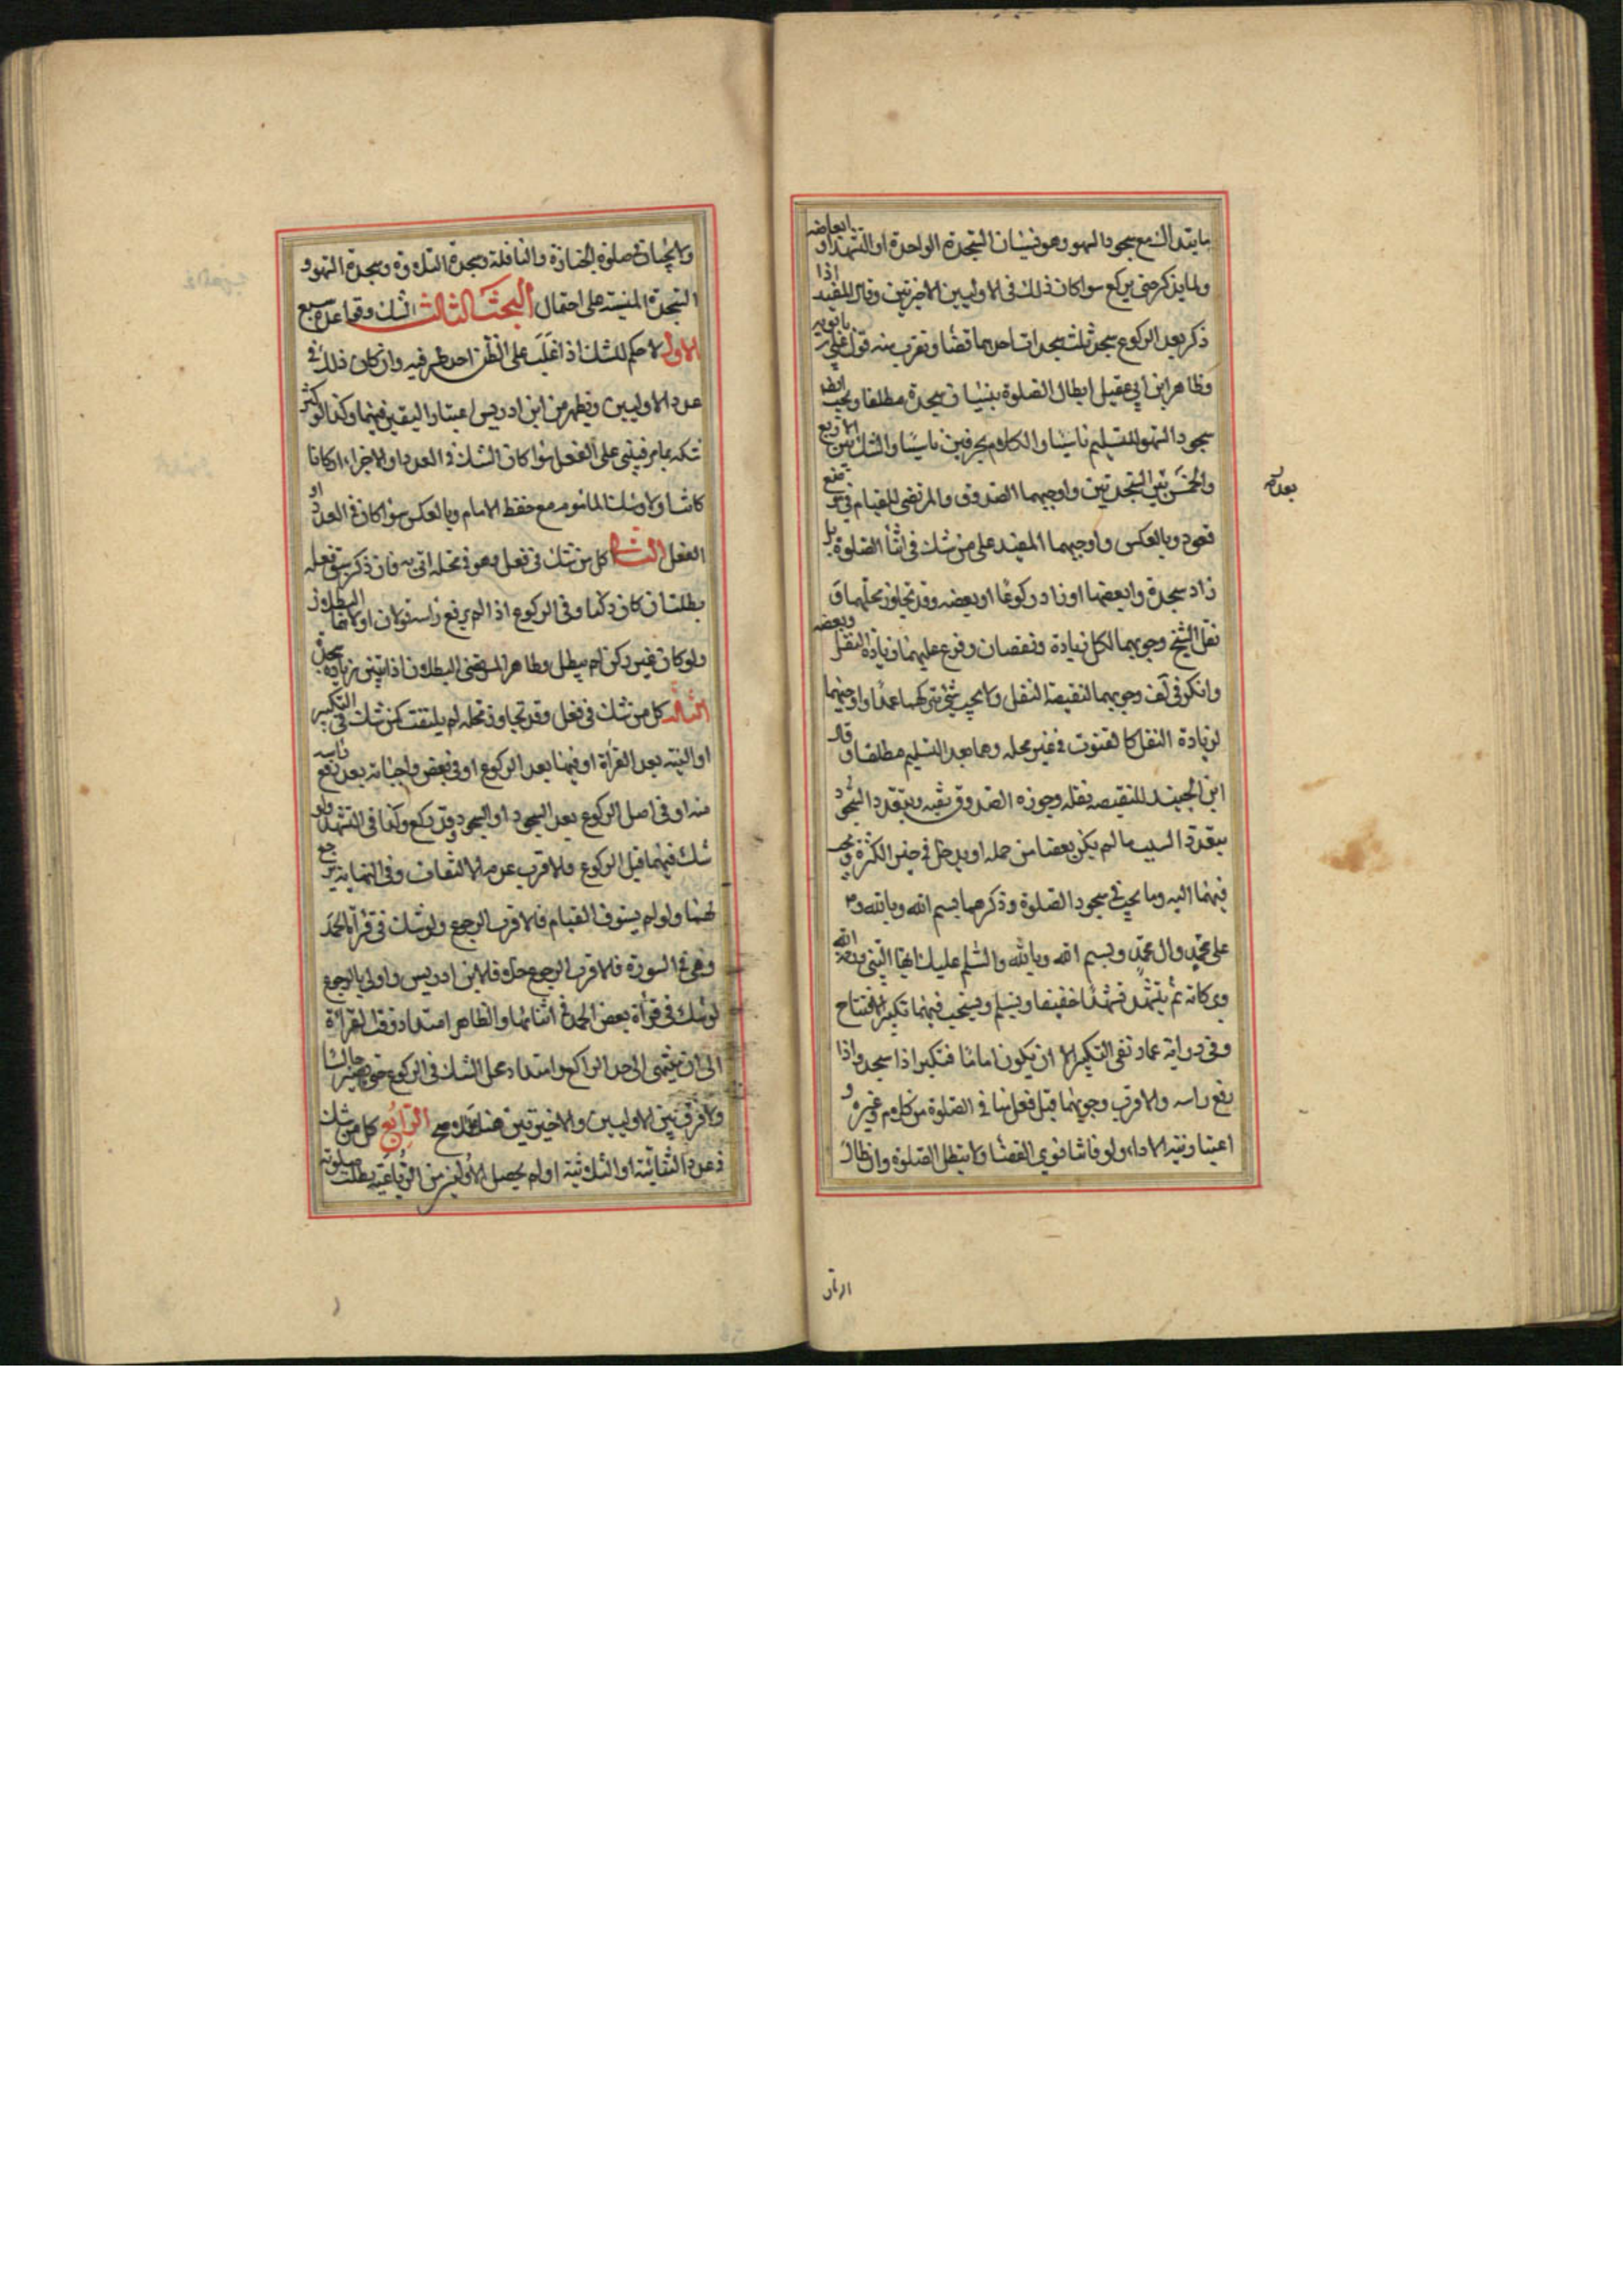 ما يتداركه مع سجود السهو وهو نسيان السجدة الواحدة او التشهد او ابعاضه
ولما يذكر حتى يركع سوا كان ذلك فى الاوليين او الاخرتين وقال المفيد اذا
ذكر بعد الركوع سجد ثلث سجدات احدها قضا ويقرب منه قول على بن بابويه
وظاهر ابن ابى عقيل ابطال الصلوة بنسيان سجدة مطلقا ويجب ايضا
سجود السهو للتسليم ناسيا والكلام بحرفين ناسيا والشك بين الاربع
والخمس بين السجدتين واوجبهما الصدوق والمرتضى للقيام فى موضع
قعود وبالعكس واوجبهما المفيد على من شك فى اثنا الصلوة هل
زاد سجدة او بعضها او زاد ركوعا او بعضه وقد تجاوز محلهما و
نقل الشيخ وجوبهما لكل زيادة ونقصان وفرع عليهما زيادة النفل وبعضه
وانكر فى وجوبهما لنقيصة النفل ولا يجب شئ بتركهما عمدا واوجبهما
لزيادة النفل كالقنوت فى غير محله وهما بعد التسليم مطلقا وقال
ابن الجنيد للنقيصه قبله وجوزه الصدوق تقيه ويتعدد السجود
بتعدد السبب ما لم يكن بعضا من جمله او يدخل فى حيز الكثرة ويجب
فيهما النيه وما يجب فى سجود الصلوة وذكرهما بسم الله وبالله و
على محمد وال محمد وبسم الله وبالله والسلم عليك ايها النبى ورحمة الله
وبركاته ثم يتشهد تشهدا خفيفا ويسلم ويستحب فيهما تكبير الافتتاح
وفى رواية عمار نفى التكبير الا ان يكون اماما فتكبر اذا سجد واذا
رفع راسه والاقرب وجوبهما قبل فعل منافى الصلوة من كلام وغيره و
اعتبار نيه الادا، ولو فاتا نوى القضا ولا تبطل الصلوة وان طال
بعد كم
ولا يجبان فى صلوة الجنازة والنافلة وسجدة التلاوة وسجدة السهو و
السجدة المنسية على احتمال البحث الثالث الشك وقواعده سبع
الاول لا حكم للشك اذا غلب على الظن احد طرفيه وان كان ذلك فى
عدد الاوليين ويظهر من ابن ادريس اعتبار اليقين فيهما وكذا لو كثر
شكه عامر فيبنى على الفعل سوا كان الشك فى العدد او الاجزاء او كانا
كاشا ولا لشك الماموم مع حفظ الامام وبالعكس سوا كان فى العدد او
الفعل الثانى كل من شك فى فعل وهو فى محله اتى به فان ذكر سبق فعله
بطلت ان كان ركنا وفى الركوع اذا لم يرفع راسه قولان اولاهما البطلان
ولو كان غير ركن لم يبطل وظاهر المرتضى البطلان اذا تيقن زيادة سجدة
الثالث كل من شك فى فعل وقد تجاوز محله لم يلتفت كمن شك فى التكبير
او النيه بعد القرأة او فيهما بعد الركوع او فى بعض واجباته بعد رفع راسه
منه او فى اصل الركوع بعد السجود او السجود وقد ركع وكذا فى التشهد ولو
شك فيهما قبل الركوع فالاقرب عدم الالتفات وفى النهاية يرجع
لهما ولو لم يستوف القيام فالاقرب الرجوع ولو شك فى قرأة الحمد
وهو فى السورة فالاقرب الرجوع خلافا لابن ادريس واولى بالرجوع
لو شك فى قرأة بعض الحمد فى اثنائها والظاهر امتداد وقت القرأة
الى ان ينتهى الى حد الراكع وامتداد محل الشك فى الركوع حتى يصير جالسا
ولا فرق بين الاوليين والاخيرتين هنا على الاصح الرابع كل من شك
فى عدد الثنائية او الثلاثية او لم يحصل الاوليين من الرباعية بطلت صلوته